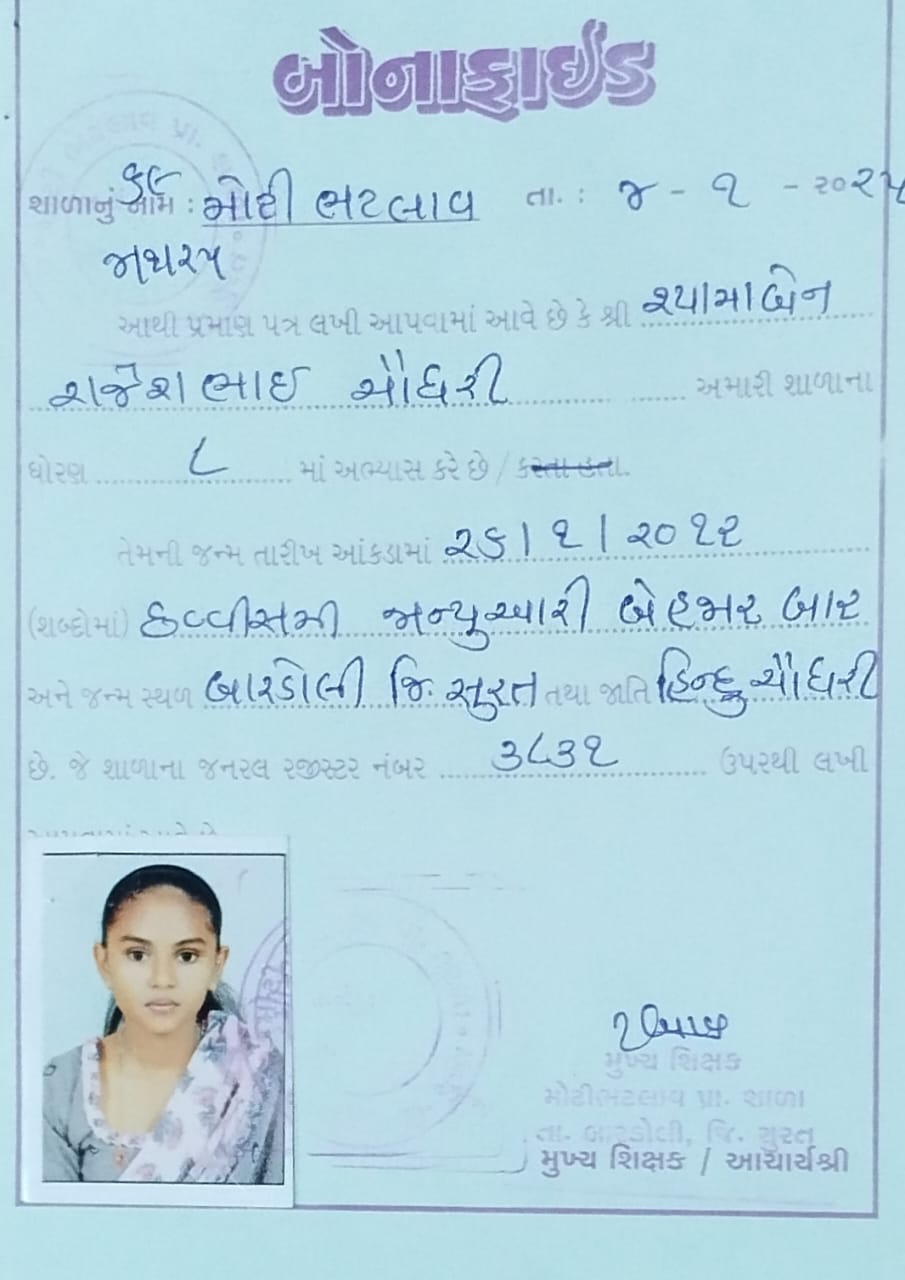 બોનાફાઈડ
શાળાનું નામ : મોટી ભટલાવ તા. : ૪ - ૧ - ૨૦૨૫
આથી પ્રમાણ પત્ર લખી આપવામાં આવે છે કે શ્રી શ્યામાબેન
રાજેશભાઇ ચૌધરી અમારી શાળાના
ધોરણ ૮ માં અભ્યાસ કરે છે / કરતા હતા.
તેમની જન્મ તારીખ આંકડામાં ૨૬/૧/૨૦૧૨
(શબ્દોમાં) છવ્વીસમી જાન્યુઆરી બેહજાર બાર
અને જન્મ સ્થળ બારડોલી જિ. સુરત તથા જાતિ હિન્દુ ચૌધરી
છે. જે શાળાના જનરલ રજીસ્ટર નંબર ૩૮૩૧ ઉપરથી લખી
મુખ્ય શિક્ષક
મોટીભટલાવ પ્રા. શાળા
તા. બારડોલી, જિ. સુરત
મુખ્ય શિક્ષક / આચાર્યશ્રી